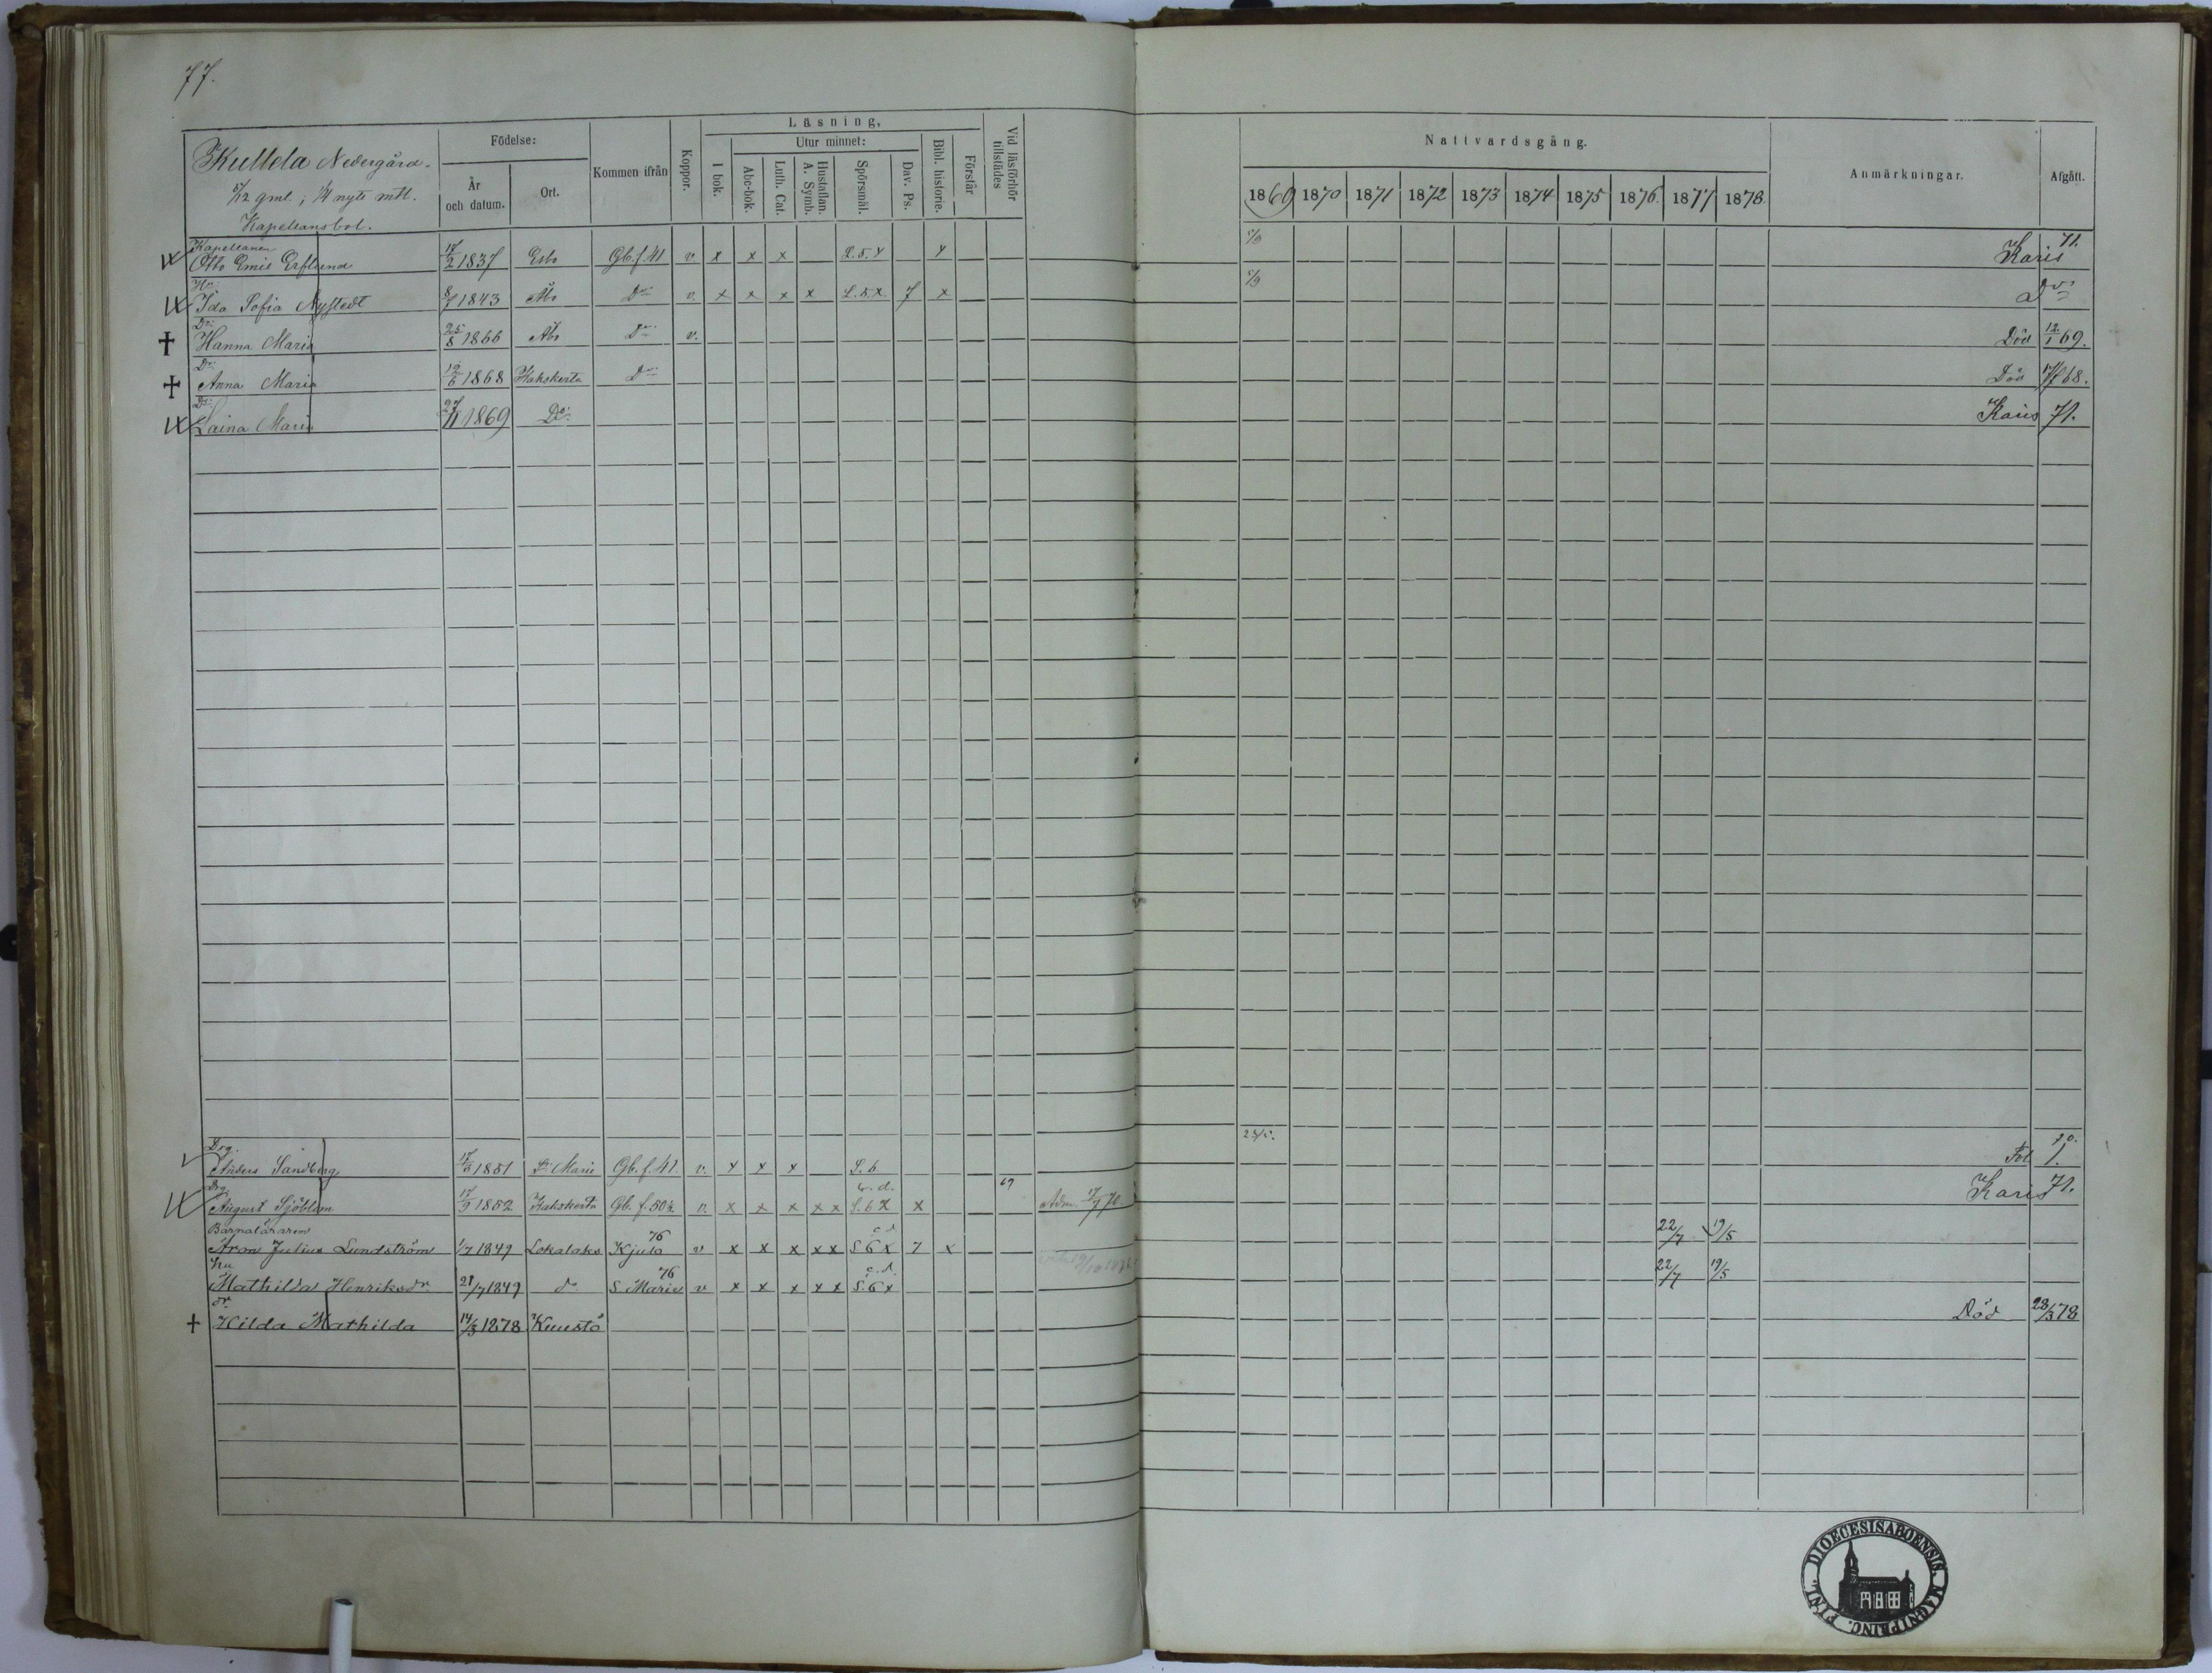 77.
Kullela Nedergård.
5/12 gml; 1/4 nytt mtl.
Kapellansbol.
Födelse:
År och datum.
Ort.
Kommen ifrån
Koppor.
Läsning.
I bok.
Utur minnet:
Abc-bok.
Luth. Cat.
Hustaflan. A. Symb.
Spörsmål.
Dav. Ps.
Bibl. historie.
Förstår
Vid läsförhör tillstädes
Nattvardsgång.
1869 1870 1871 1872 1873 1874 1875 1876 1877 1878
Anmärkningar.
Afgått.
Kapellanen
Otto Emil Erflund 17/2 1837 Esbo Gb. f. 41 v x x x 2.5.x x Karis 71.
Hu.
Ida Sofia Nystedt 8/7 1843 Åbo Do v. x x x x 2.5.x 7 x Do
Dr.
† Hanna Maria 25/8 1866 Åbo Do v. Död 12/1 69.
Dr.
† Anna Maria 12/6 1868 Kakskerta Do Död 17/7 68.
Dr.
Laina Maria 27/11 1869 Do Karis 71.
Drg.
Anders Sandberg 1851 St Marie Gb. f. 41. v. x x x S. 6 Fol 1.
Drg.
August Sjöblom 17/9 1852 Kakskerta Gb. f. 50½ v. x x x x x S. 6 x x 69 Adm. Karis 71.
Barnaläraren
Aron Julius Lundström 1/7 1849 Lokalaks Kjulo 76 v x x x x x S 6 x 7 x 22/7 19/5
Hu
Mathilda Henriksdr 21/7 1849 do S Marie 76 v x x x x x c.d. S. 6 x 22/7 19/5
dr.
† Hilda Mathilda 14/3 1878 Kuustö Död 28/3 78
DIOECESIS ABOENSIS. MAGNI PRINC. FINL.